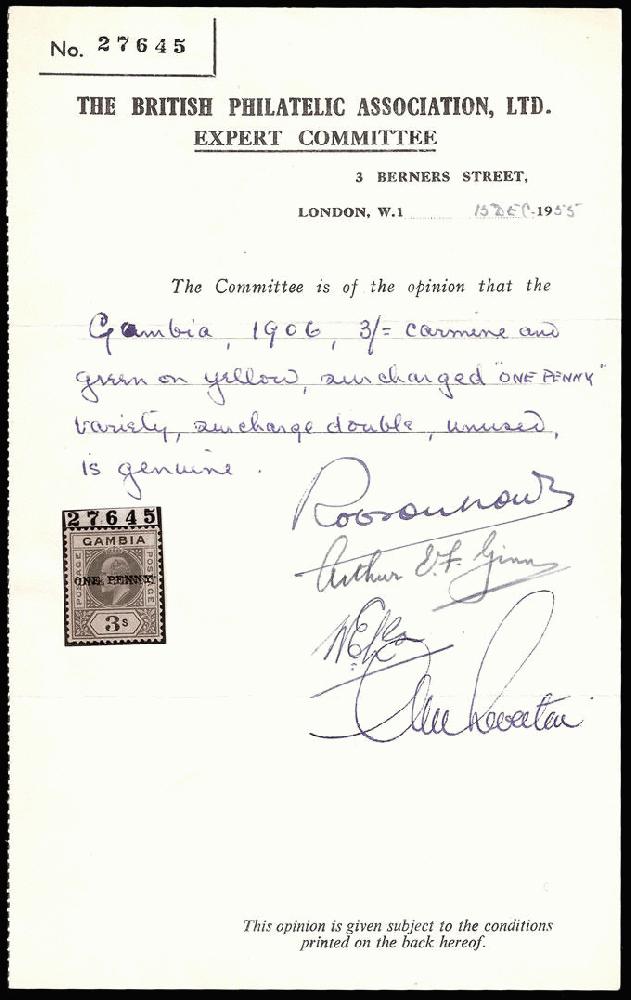 No. 27645
THE BRITISH PHILATELIC ASSOCIATION, LTD.
EXPERT COMMITTEE
3 BERNERS STREET,
LONDON, W.1 15 DEC 1955
The Committee is of the opinion that the
Gambia, 1906, 3/= carmine and
green on yellow, surcharged "ONE PENNY"
variety, surcharge double, unused,
is genuine.
27645
GAMBIA
POSTAGE POSTAGE
ONE PENNY
3s
Arthur E.F. Ginn
This opinion is given subject to the conditions
printed on the back hereof.